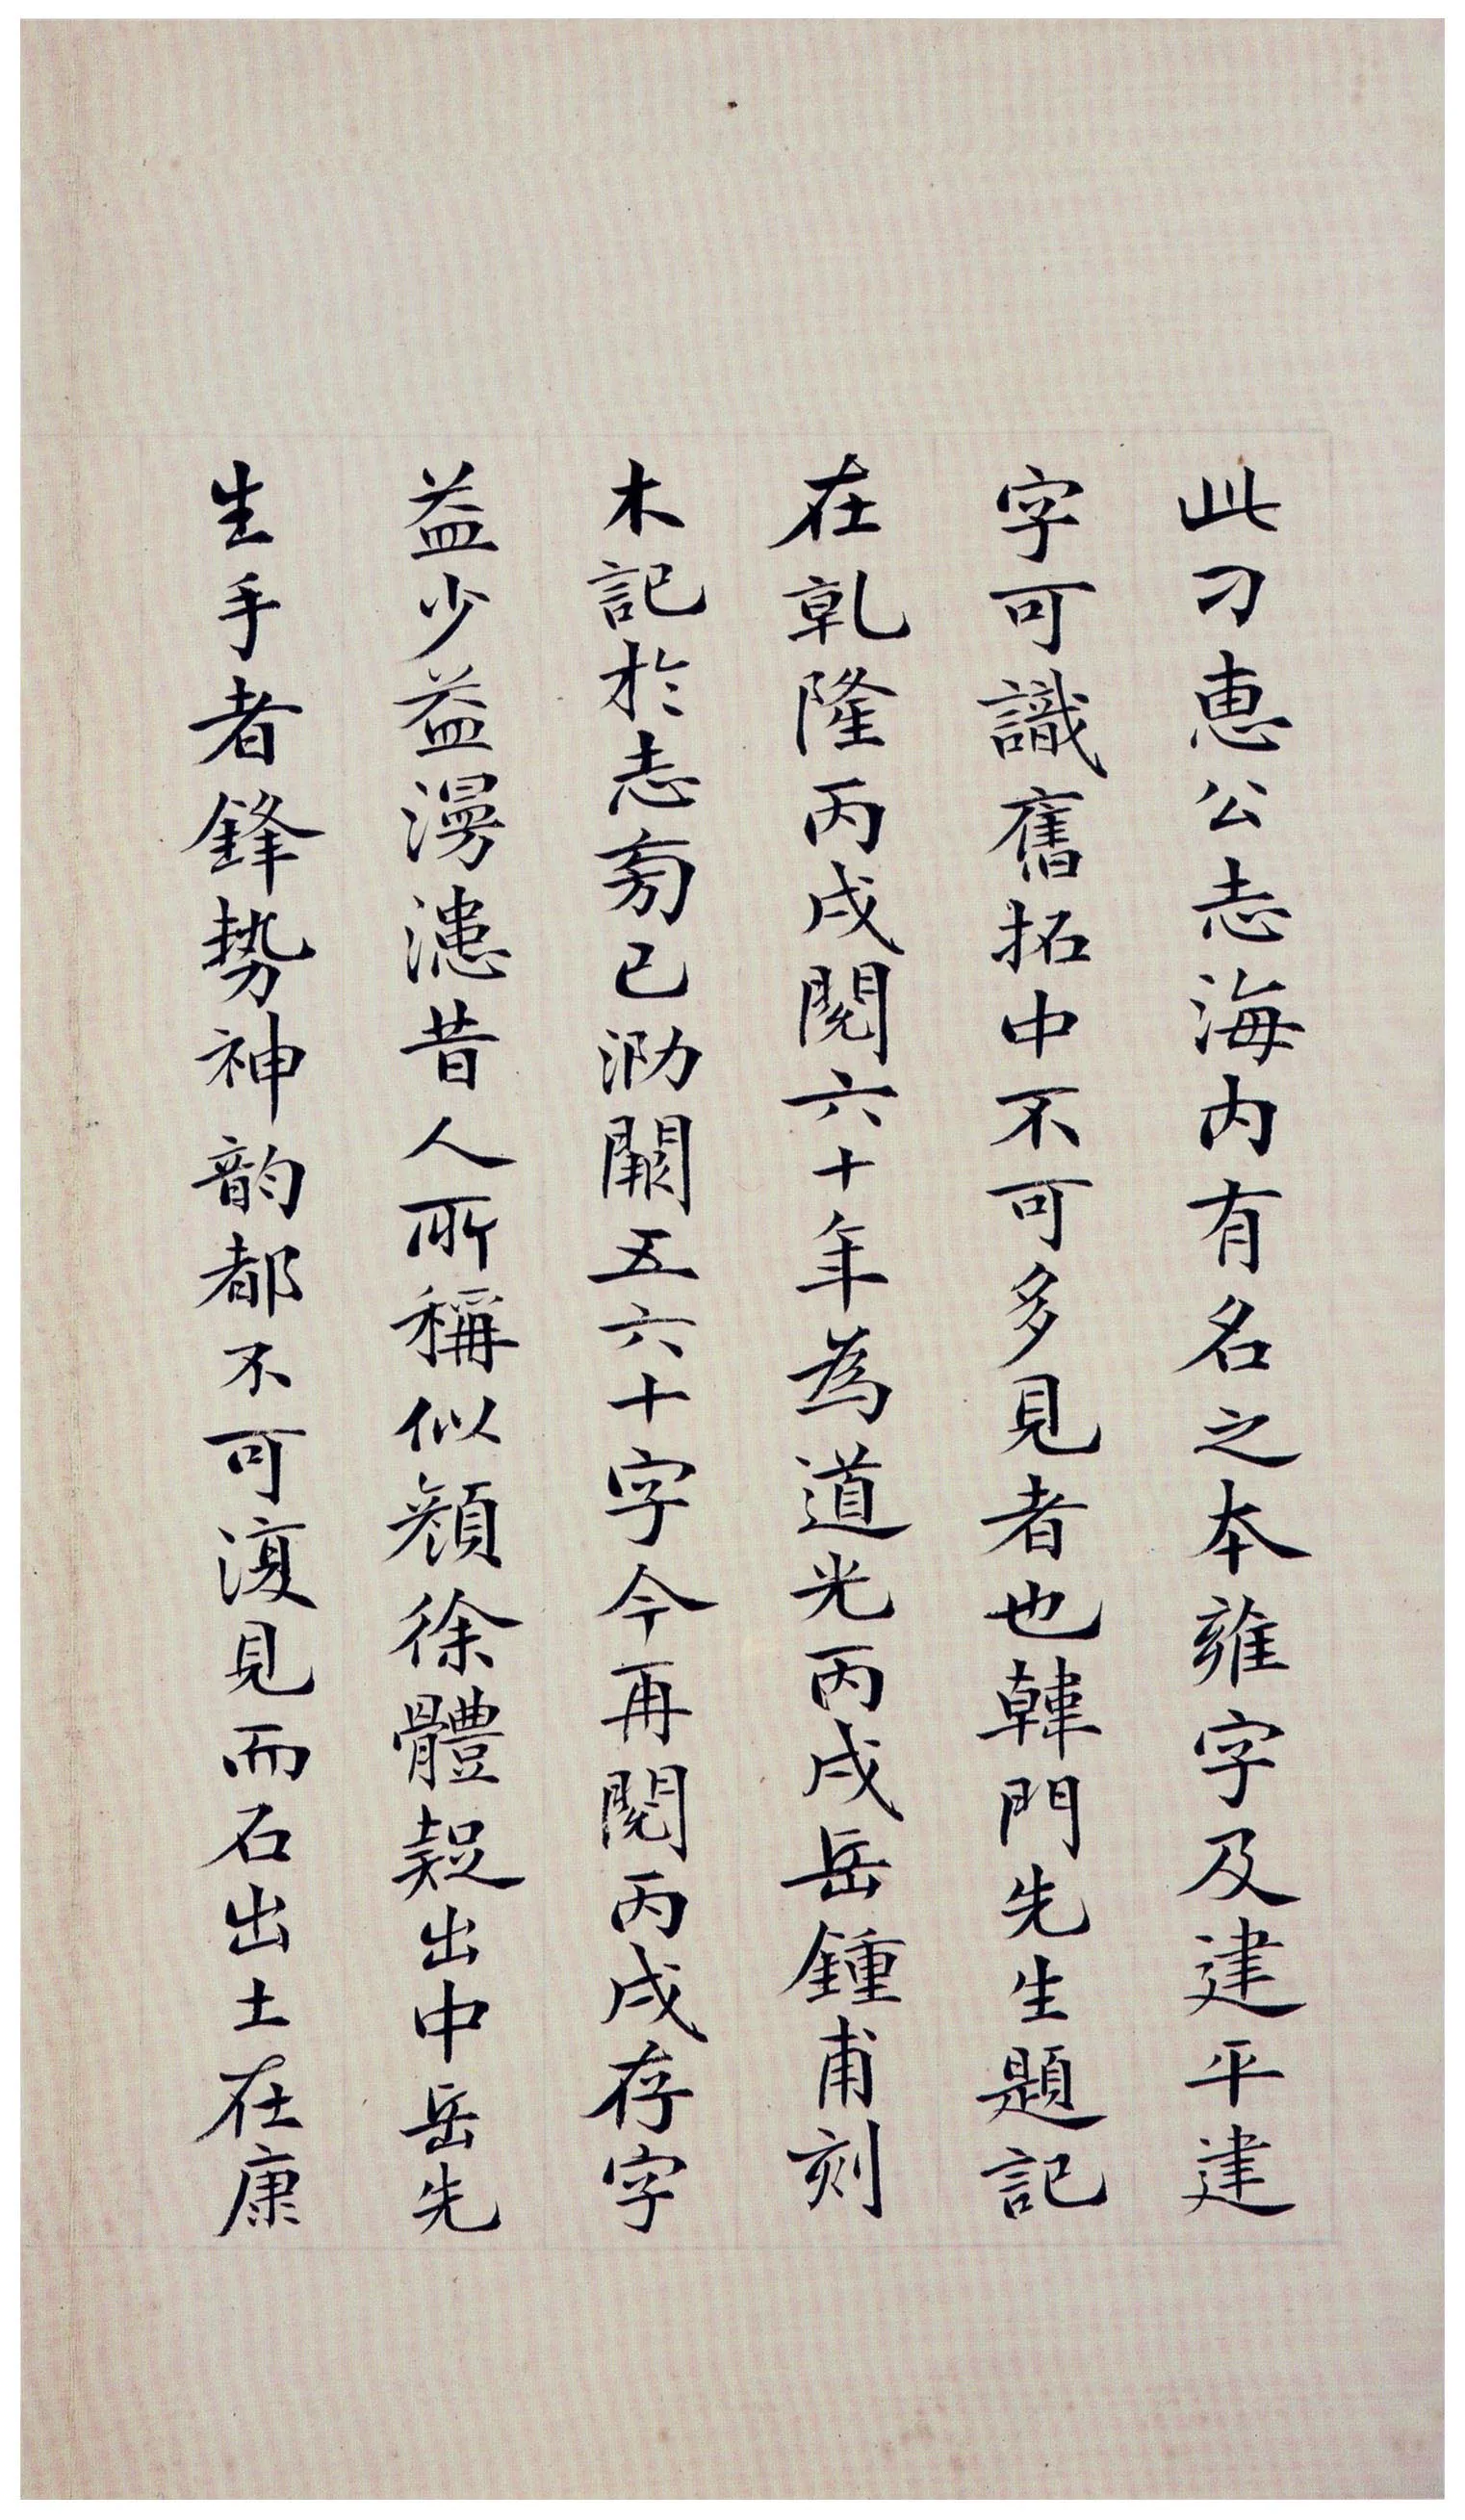 此刁惠公志海內有名之本雍字及建平建
字可識舊拓中不可多見者也韓門先生題記
在乹隆丙戌閱六十年為道光丙戌岳鍾甫刻
木記於志旁已泐闕五六十字今再閱丙戌存字
益少益漫漶昔人所稱似顏徐體疑出中岳先
生手者鋒勢神韵都不可復見而石出土在康